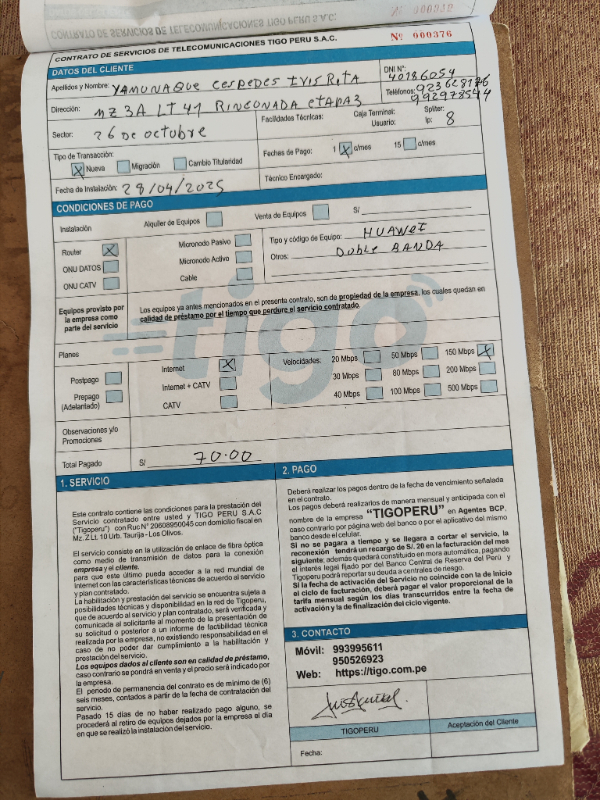 CONTRATO DE SERVICIOS DE TELECOMUNICACIONES TIGO PERU S.A.C. Nº 000376
CONTRATO DE SERVICIOS DE TELECOMUNICACIONES TIGO PERU S.A.C. Nº 000376
DATOS DEL CLIENTE
Apellidos y Nombre: YAMUNAQUE CESPEDES IVIS RITA
DNI Nº 40186054
Dirección: MZ 3A LT 41 RINCONADA ETAPA3
Teléfonos: 923628176
992978544
Sector: 26 de octubre
Facilidades Técnicas: Caja Terminal: Spliter:
Usuario: Ip: 8
Tipo de Transacción:
X Nueva Migración Cambio Titularidad
Fechas de Pago: 1 X c/mes 15 c/mes
Fecha de Instalación: 28/04/2025
Técnico Encargado:
CONDICIONES DE PAGO
Instalación Alquiler de Equipos Venta de Equipos S/
Router X Micronodo Pasivo Tipo y código de Equipo: HUAWEI
ONU DATOS Micronodo Activo Otros: Doble BANDA
ONU CATV Cable
Equipos provisto por
la empresa como
parte del servicio
Los equipos ya antes mencionados en el presente contrato, son de propiedad de la empresa, los cuales quedan en
calidad de préstamo por el tiempo que perdure el servicio contratado.
tigo
Planes
Postpago
Prepago
(Adelantado)
Internet X
Internet + CATV
CATV
Velocidades: 20 Mbps 50 Mbps 150 Mbps X
30 Mbps 80 Mbps 200 Mbps
40 Mbps 100 Mbps 500 Mbps
Observaciones y/o
Promociones
Total Pagado S/ 70.00
1. SERVICIO
Este contrato contiene las condiciones para la prestación del
Servicio contratado entre usted y TIGO PERU S.A.C
("Tigoperu") con Ruc Nº 20608950045 con domicilio fiscal en
Mz. Z Lt. 10 Urb. Taurija - Los Olivos.
El servicio consiste en la utilización de enlace de fibra óptica
como medio de transmisión de datos para la conexión
empresa y el cliente.
para que este último pueda acceder a la red mundial de
Internet con las características técnicas de acuerdo al servicio
y plan contratado.
La habilitación y prestación del servicio se encuentra sujeta a
posibilidades técnicas y disponibilidad en la red de Tigoperu,
que de acuerdo al servicio y plan contratado, será verificada y
comunicada al solicitante al momento de la presentación de
su solicitud o posterior a un informe de factibilidad técnica
realizada por la empresa, no existiendo responsabilidad en el
caso de no poder dar cumplimiento a la habilitación y
prestación del servicio.
Los equipos dados al cliente son en calidad de préstamo,
caso contrario se pondrá en venta y el precio será indicado por
la empresa.
El periodo de permanencia del contrato es de mínimo de (6)
seis meses, contados a partir de la fecha de contratación del
servicio.
Pasado 15 días de no haber realizado pago alguno, se
procederá al retiro de equipos dejados por la empresa al día
en que se realizó la instalación del servicio.
2. PAGO
Deberá realizar los pagos dentro de la fecha de vencimiento señalada
en el contrato.
Los pagos deberá realizarlos de manera mensual y anticipada con el
nombre de la empresa "TIGOPERU" en Agentes BCP,
caso contrario por página web del banco o por el aplicativo del mismo
banco desde el celular.
Si no se pagara a tiempo y se llegara a cortar el servicio, la
reconexión tendrá un recargo de S/. 20 en la facturación del mes
siguiente; además quedará constituido en mora automática, pagando
el interés legal fijado por el Banco Central de Reserva del Perú y
Tigoperu podrá reportar su deuda a centrales de riesgo.
Si la fecha de activación del Servicio no coincide con la de inicio
el ciclo de facturación, deberá pagar el valor proporcional de la
tarifa mensual según los días transcurridos entre la fecha de
activación y la de finalización del ciclo vigente.
3. CONTACTO
Móvil: 993995611
950526923
Web: https://tigo.com.pe
TIGOPERU
Aceptación del Cliente
Fecha: